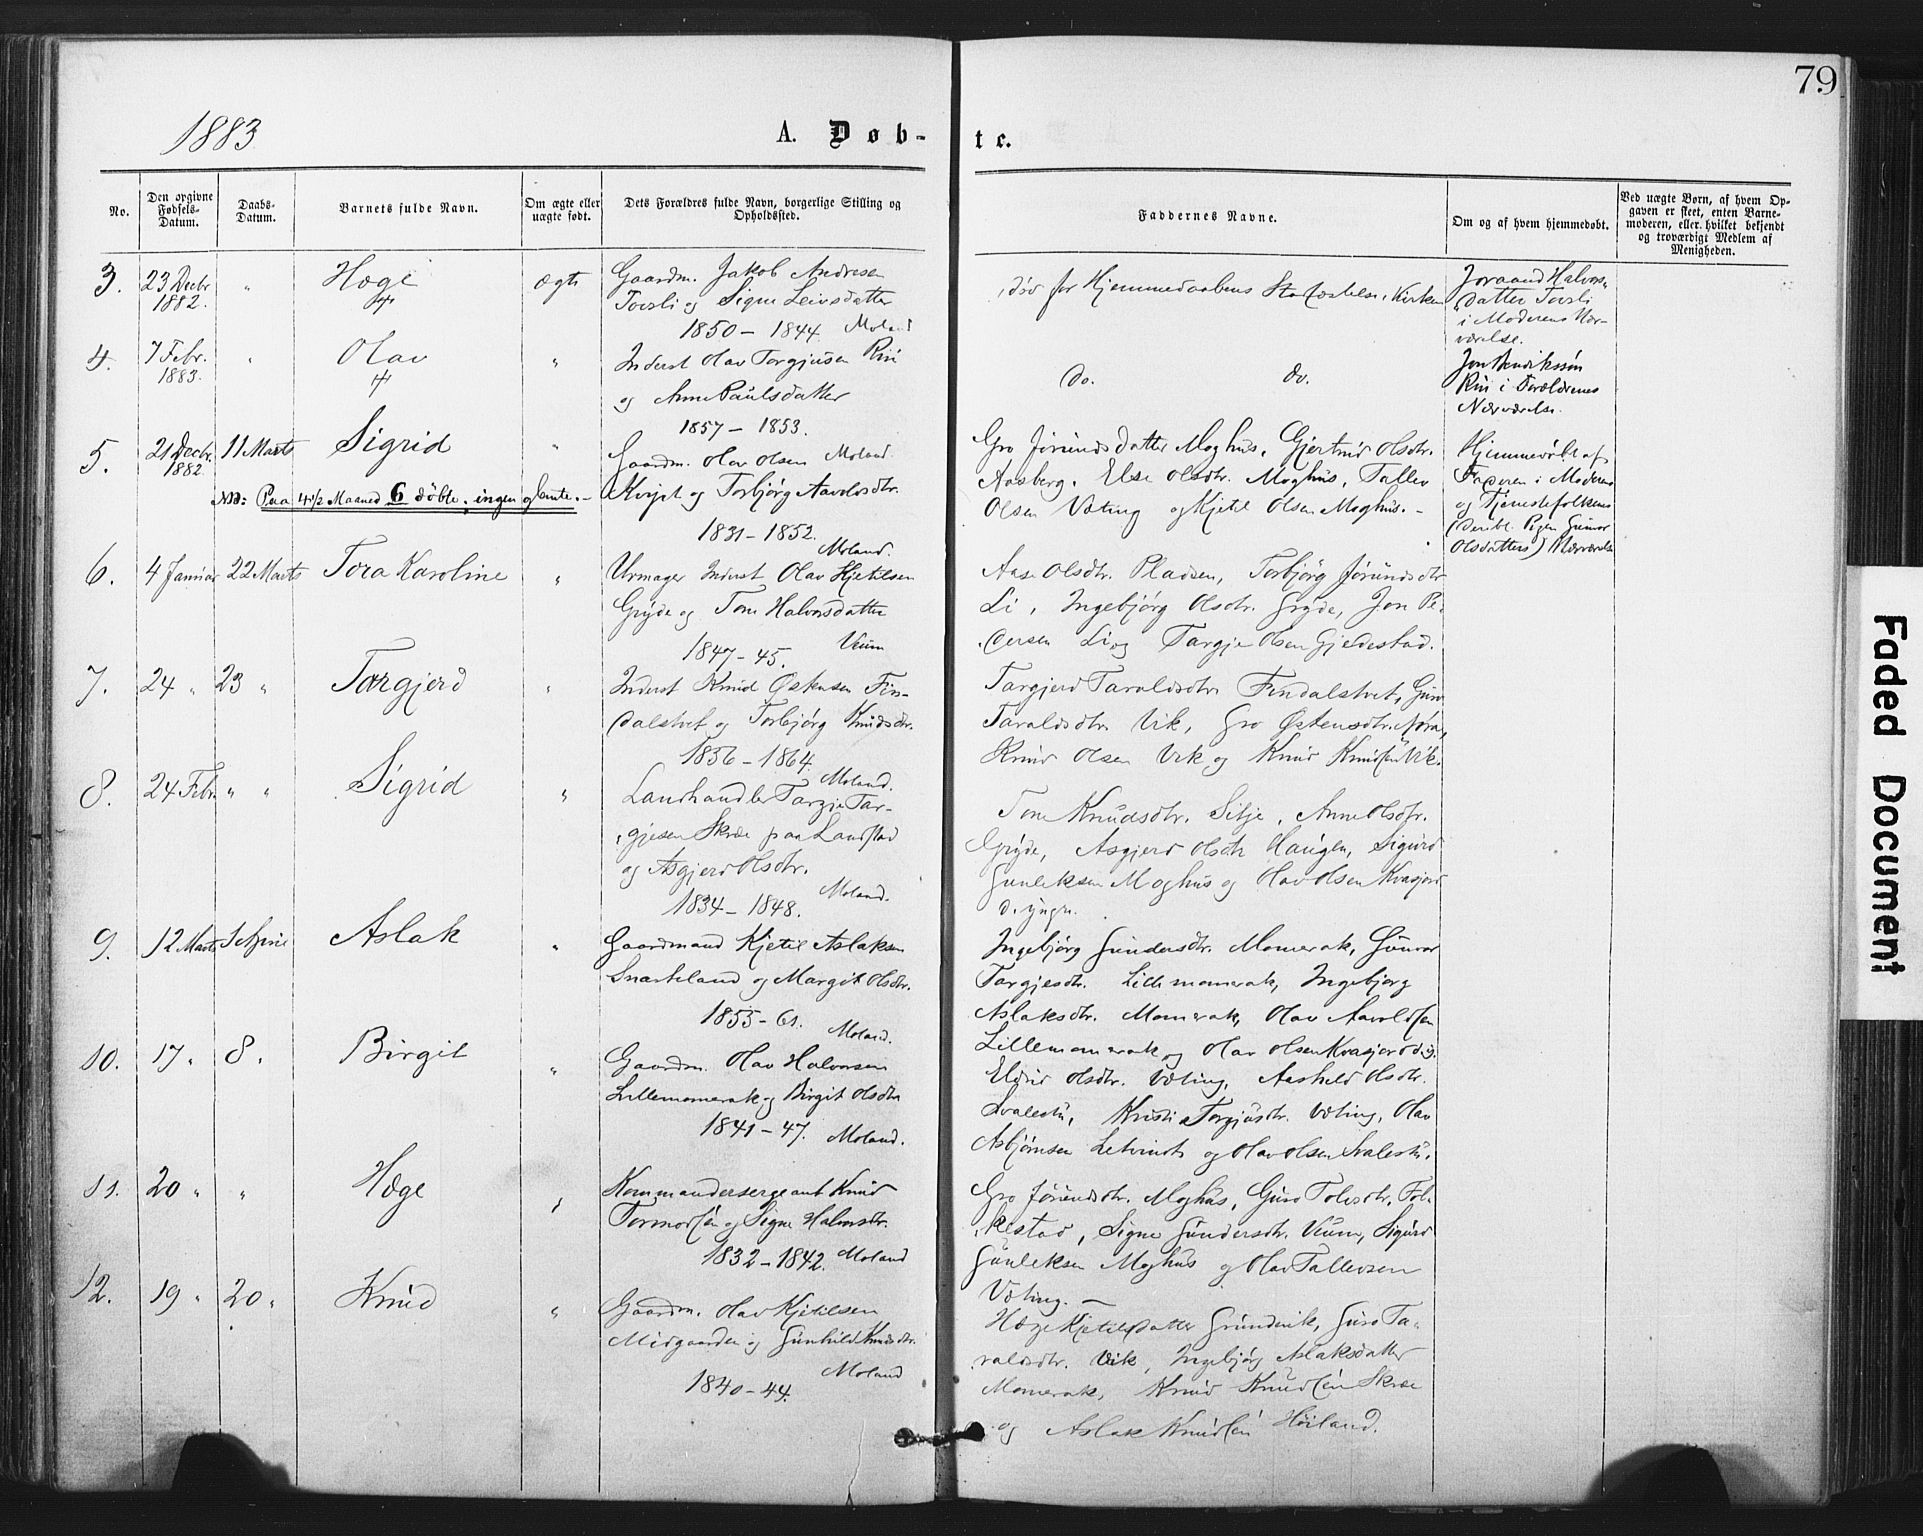 79
1883
A. Døb-
te.
No.
Den opgivne Fødsels-Datum.
Daabs-Datum.
Barnets fulde Navn.
Om ægte eller uægte født.
Dets Forældres fulde Navn, borgerlige Stilling og Opholdssted.
Faddernes Navne.
Om og af hvem hjemmedøbt.
Ved uægte Børn, af hvem Opgaven er skeet, enten Barnemoderen, eller hvilket bekjendt og troværdigt Medlem af Menigheden.
3. 23 Decbr 1882. " Hæge ægte
Gaardm. Jakob Andresen
Torsli og Signe Leivsdatter
1850 - 1844. Moland
død før Hjemmedaabens Stadfæstelse i Kirken
Joraand Halvors-
datter Torsli
i Moderens Nær-
værelse.
4. 7 Febr. 1883. " Olav "
Inderst Olav Torgjusen Rui
og Anne Paulsdatter
1857 - 1853.
do. do.
Jon Henrikssøn
Rui i Forældrenes
Nærværelse.
5. 21 Decbr. 1882 11 Marts Sigrid "
Moland.
Gaardm. Olav Olsen
Kvipt og Torbjørg Aavoldsdtr.
1831 - 1852.
NB: Paa 4 1/2 Maaned 6 døbte; ingen uægte. -
Gro Jørundsdatter Moghus, Gjertrud Olsdtr.
Aasberg. Else Olsdtr. Moghus, Tallev
Olsen Væting og Kjetil Olsen Moghus. -
Hjemmedøbt af
Faderen i Moderens
og Tjenestefolkenes
(deribl. Pigen Gunvor
Olsdatters) Nærværelse
6. 4 Januar 22 Marts Tora Karoline "
Moland.
Urmager Inderst Olav Kjetilsen
Gryde og Tone Halvorsdatter
1847 - 45. Veum
Aase Olsdtr. Pladsen, Torbjørg Jørundsdtr
Li, Ingebjørg Olsdtr. Gryde, Jon Pe-
dersen Li og Targje Olsen Gjedestad.
7. 24 " 23 " Targjerd "
Inderst Knud Østensen Fin-
dalstvet og Torbjørg Knudsdtr.
1856 - 1864.
Targjerd Taraldsdtr Findalstvet, Guro
Taraldsdtr. Vik, Gro Østensdtr. Nora,
Knud Olsen Vik og Knud Knudsen Vik.
8. 24 Febr. " " Sigrid "
Moland.
Landhandler Targje Tar-
gjesen Skree paa Landstad
og Asgjerd Olsdtr.
1834 - 1848. Moland.
Tone Knudsdtr. Silje, Anne Olsdtr.
Gryde, Asgjerd Olsdtr Haugen, Sigurd
Gunleksen Moghus og Olav Olsen Kvasjord
d. yngr.
9. 12 Marts 1 April Aslak "
Gaardmand Kjetil Aslaksen
Snarteland og Margit Olsdtr.
1855 - 61. Moland.
Ingebjørg Gundersdtr. Momerak, Gunvor
Targjesdtr. Lillemomerak, Ingebjørg
Aslaksdtr. Momerak, Olav Aavoldsen
Lillemomerak og Olav Olsen Kvasjord d. y.
10. 17 " 8 " Birgit "
Gaardm. Olav Halvorsen
Lillemomerak og Birgit Olsdtr
1841 - 47. Moland.
Eldrid Olsdtr. Væting, Aashild Olsdtr.
Svalestu, Kristi Torgjusdtr. Væting, Olav
Asbjørnsen Letvindt og Olav Olsen Svalestu.
11. 20 " " Hæge "
Kommandersergeant Knud
Tormodsen og Signe Halvorsdtr.
1832 - 1842. Moland
Gro Jørundsdtr. Moghus, Guro Tovsdtr. Fol-
kestad, Signe Gundersdtr. Veum, Sigurd
Gunleksen Moghus og Olav Tallevsen
Væting. -
12. 19 " 20 " Knud "
Gaardm. Olav Kjetilsen
Midgaarden og Gunhild Knudsdtr.
1840 - 44. Moland
Hæge Kjetilsdatter Grundvik, Guro Ta-
raldsdtr. Vik, Ingebjørg Aslaksdatter
Momerak, Knud Knudsen Skree
og Aslak Knudsen Høiland.
Faded Document